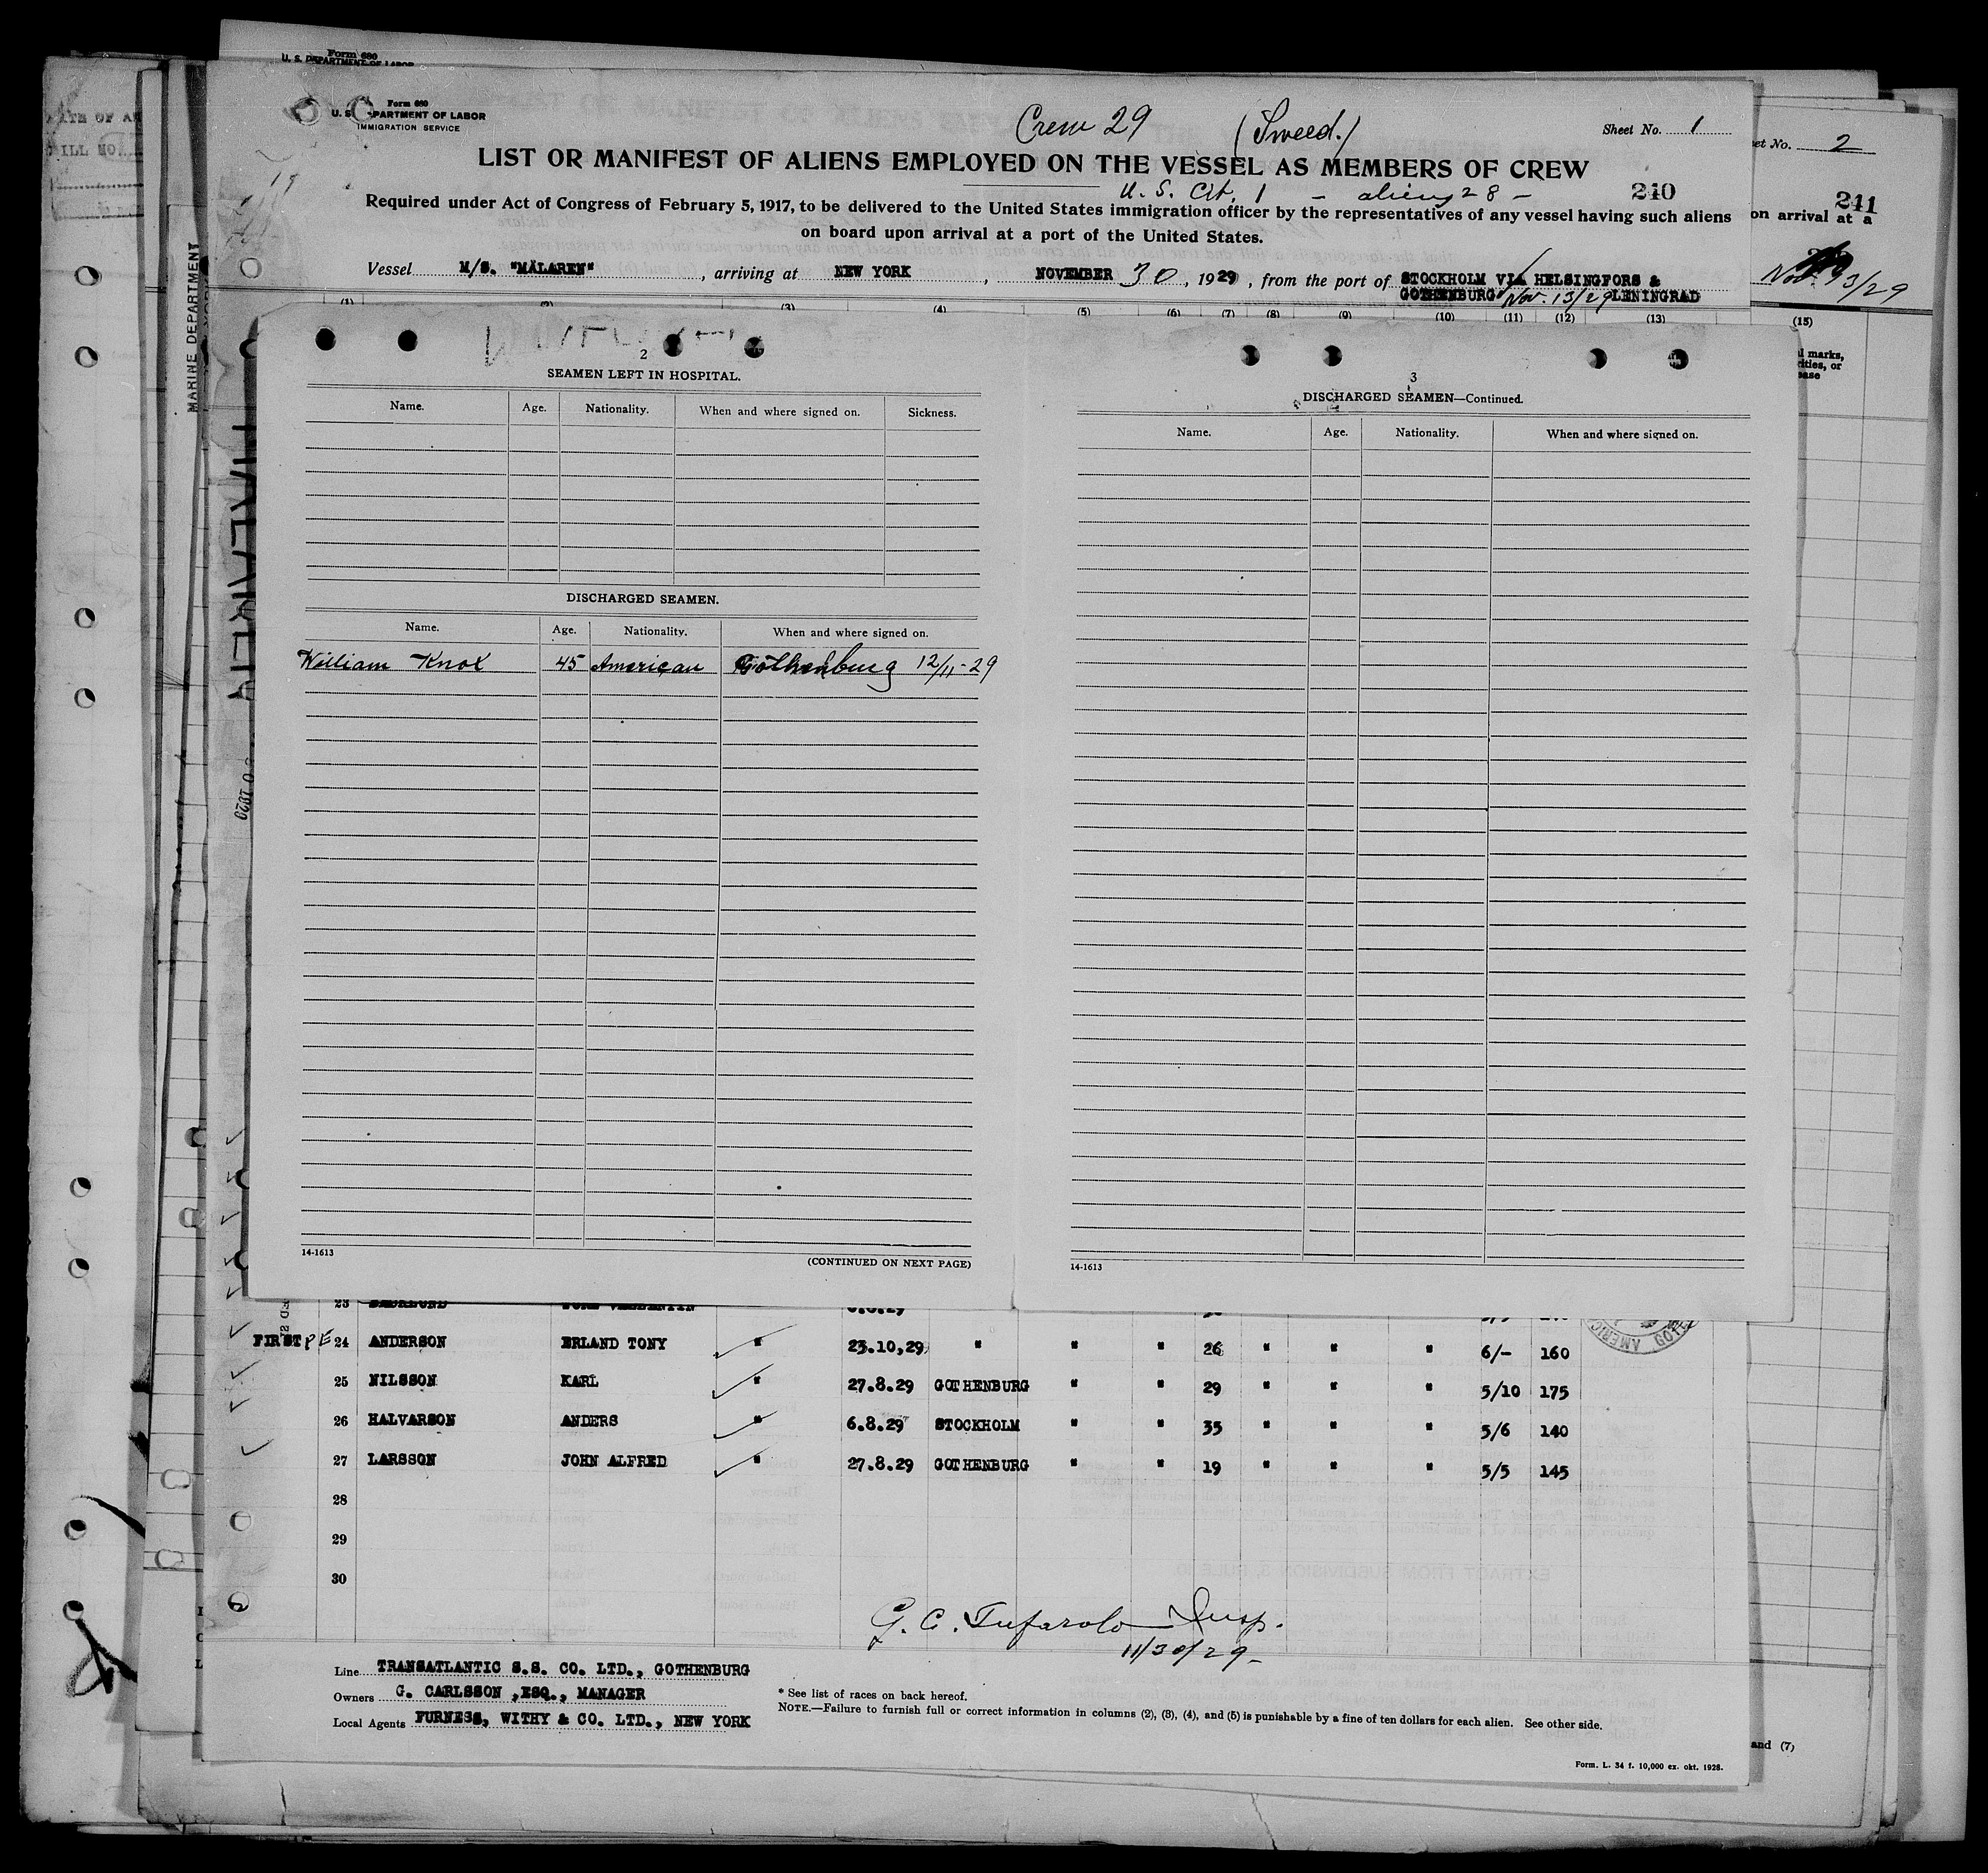 Form 680
U. S. DEPARTMENT OF LABOR
Form 680
U. S. DEPARTMENT OF LABOR
IMMIGRATION SERVICE
Crew 29 (Sweed.)
Sheet No. 1
Sheet No. 2
LIST OR MANIFEST OF ALIENS EMPLOYED ON THE VESSEL AS MEMBERS OF CREW
U. S. Cit. 1 - aliens 28 -
240
241
Required under Act of Congress of February 5, 1917, to be delivered to the United States immigration officer by the representatives of any vessel having such aliens
on board upon arrival at a port of the United States.
on arrival at a
Vessel M/S. "MÄLAREN", arriving at NEW YORK, NOVEMBER 30, 1929, from the port of STOCKHOLM VIA HELSINGFORS &
GOTHENBURG Nov. 13/29 LENINGRAD
Nov. 13/29
(1) (2) (3) (4) (5) (6) (7) (8) (9) (10) (11) (12) (13)
(15)
MARINE DEPARTMENT
2
SEAMEN LEFT IN HOSPITAL.
Name. Age. Nationality. When and where signed on. Sickness.
DISCHARGED SEAMEN.
Name. Age. Nationality. When and where signed on.
William Knox 45 American Gothenburg 12/11-29
14-1613
(CONTINUED ON NEXT PAGE)
3
DISCHARGED SEAMEN—Continued.
Name. Age. Nationality. When and where signed on.
14-1613
23
FIRST PE 24 ANDERSON ERLAND TONY " 23.10,29 " " " 26 " " " 6/- 160
25 NILSSON KARL " 27.8.29 GOTHENBURG " " 29 " " " 5/10 175
26 HALVARSON ANDERS " 6.8.29 STOCKHOLM " " 35 " " " 5/6 140
27 LARSSON JOHN ALFRED " 27.8.29 GOTHENBURG " " 19 " " " 5/5 145
28
29
30
G. C. Tufarolo Insp.
11/30/29-
Line TRANSATLANTIC S.S. CO. LTD., GOTHENBURG
Owners G. CARLSSON ,ESQ., MANAGER
Local Agents FURNESS, WITHY & CO. LTD., NEW YORK
* See list of races on back hereof.
NOTE.—Failure to furnish full or correct information in columns (2), (3), (4), and (5) is punishable by a fine of ten dollars for each alien. See other side.
and (7)
Form. L. 34 f. 10,000 ex. okt. 1928.